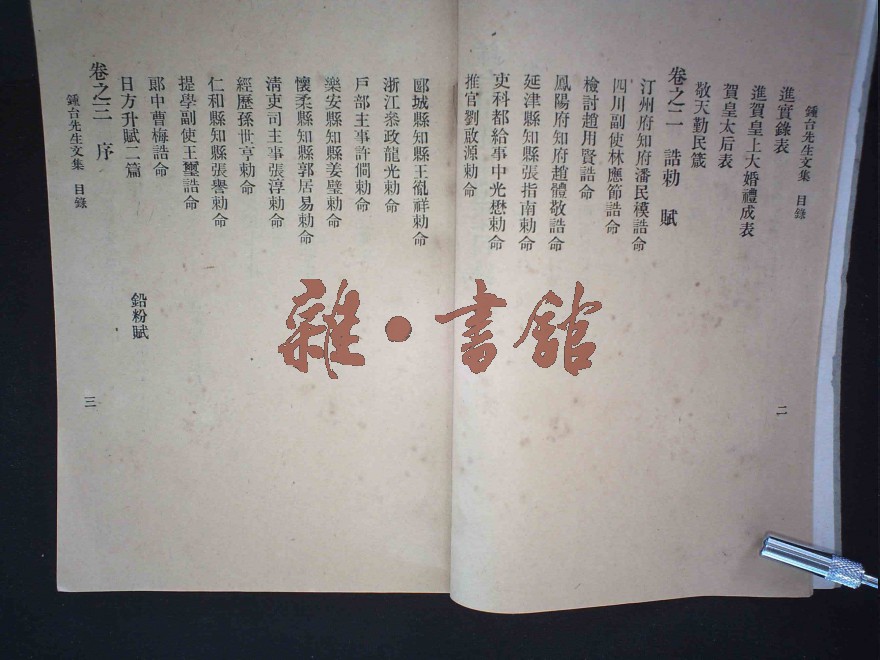 鍾台先生文集 目錄
二
進實錄表
進賀皇上大婚禮成表
賀皇太后表
敬天勤民箴
卷之二 誥勅 賦
汀州府知府潘民模誥命
四川副使林應節誥命
檢討趙用賢誥命
鳳陽府知府趙體敬誥命
延津縣知縣張指南勅命
吏科都給事中光懋勅命
推官劉啟源勅命
郾城縣知縣王胤祥勅命
浙江叅政龍光勅命
戶部主事許僩勅命
樂安縣知縣姜璧勅命
懷柔縣知縣郭居易勅命
清吏司主事張淳勅命
經歷孫世亨勅命
仁和縣知縣張譽勅命
提學副使王璽誥命
郎中曹梅誥命
日方升賦二篇 鉛粉賦
卷之三 序
鍾台先生文集 目錄
三
雜·書館